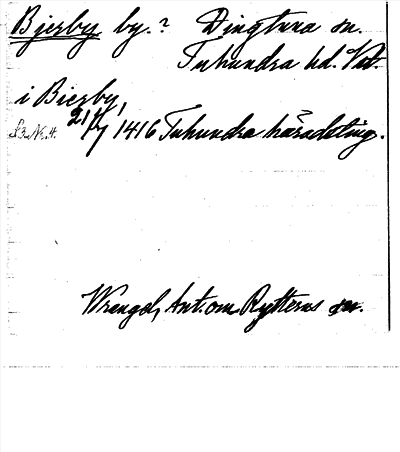 Bjerby by.? Dingtuna sn.
Tuhundra hd. Vstm.
i Bierby,
21/7 1416 Tuhundra häradsting.
Wrangel, Ant. om Rytterns sn.